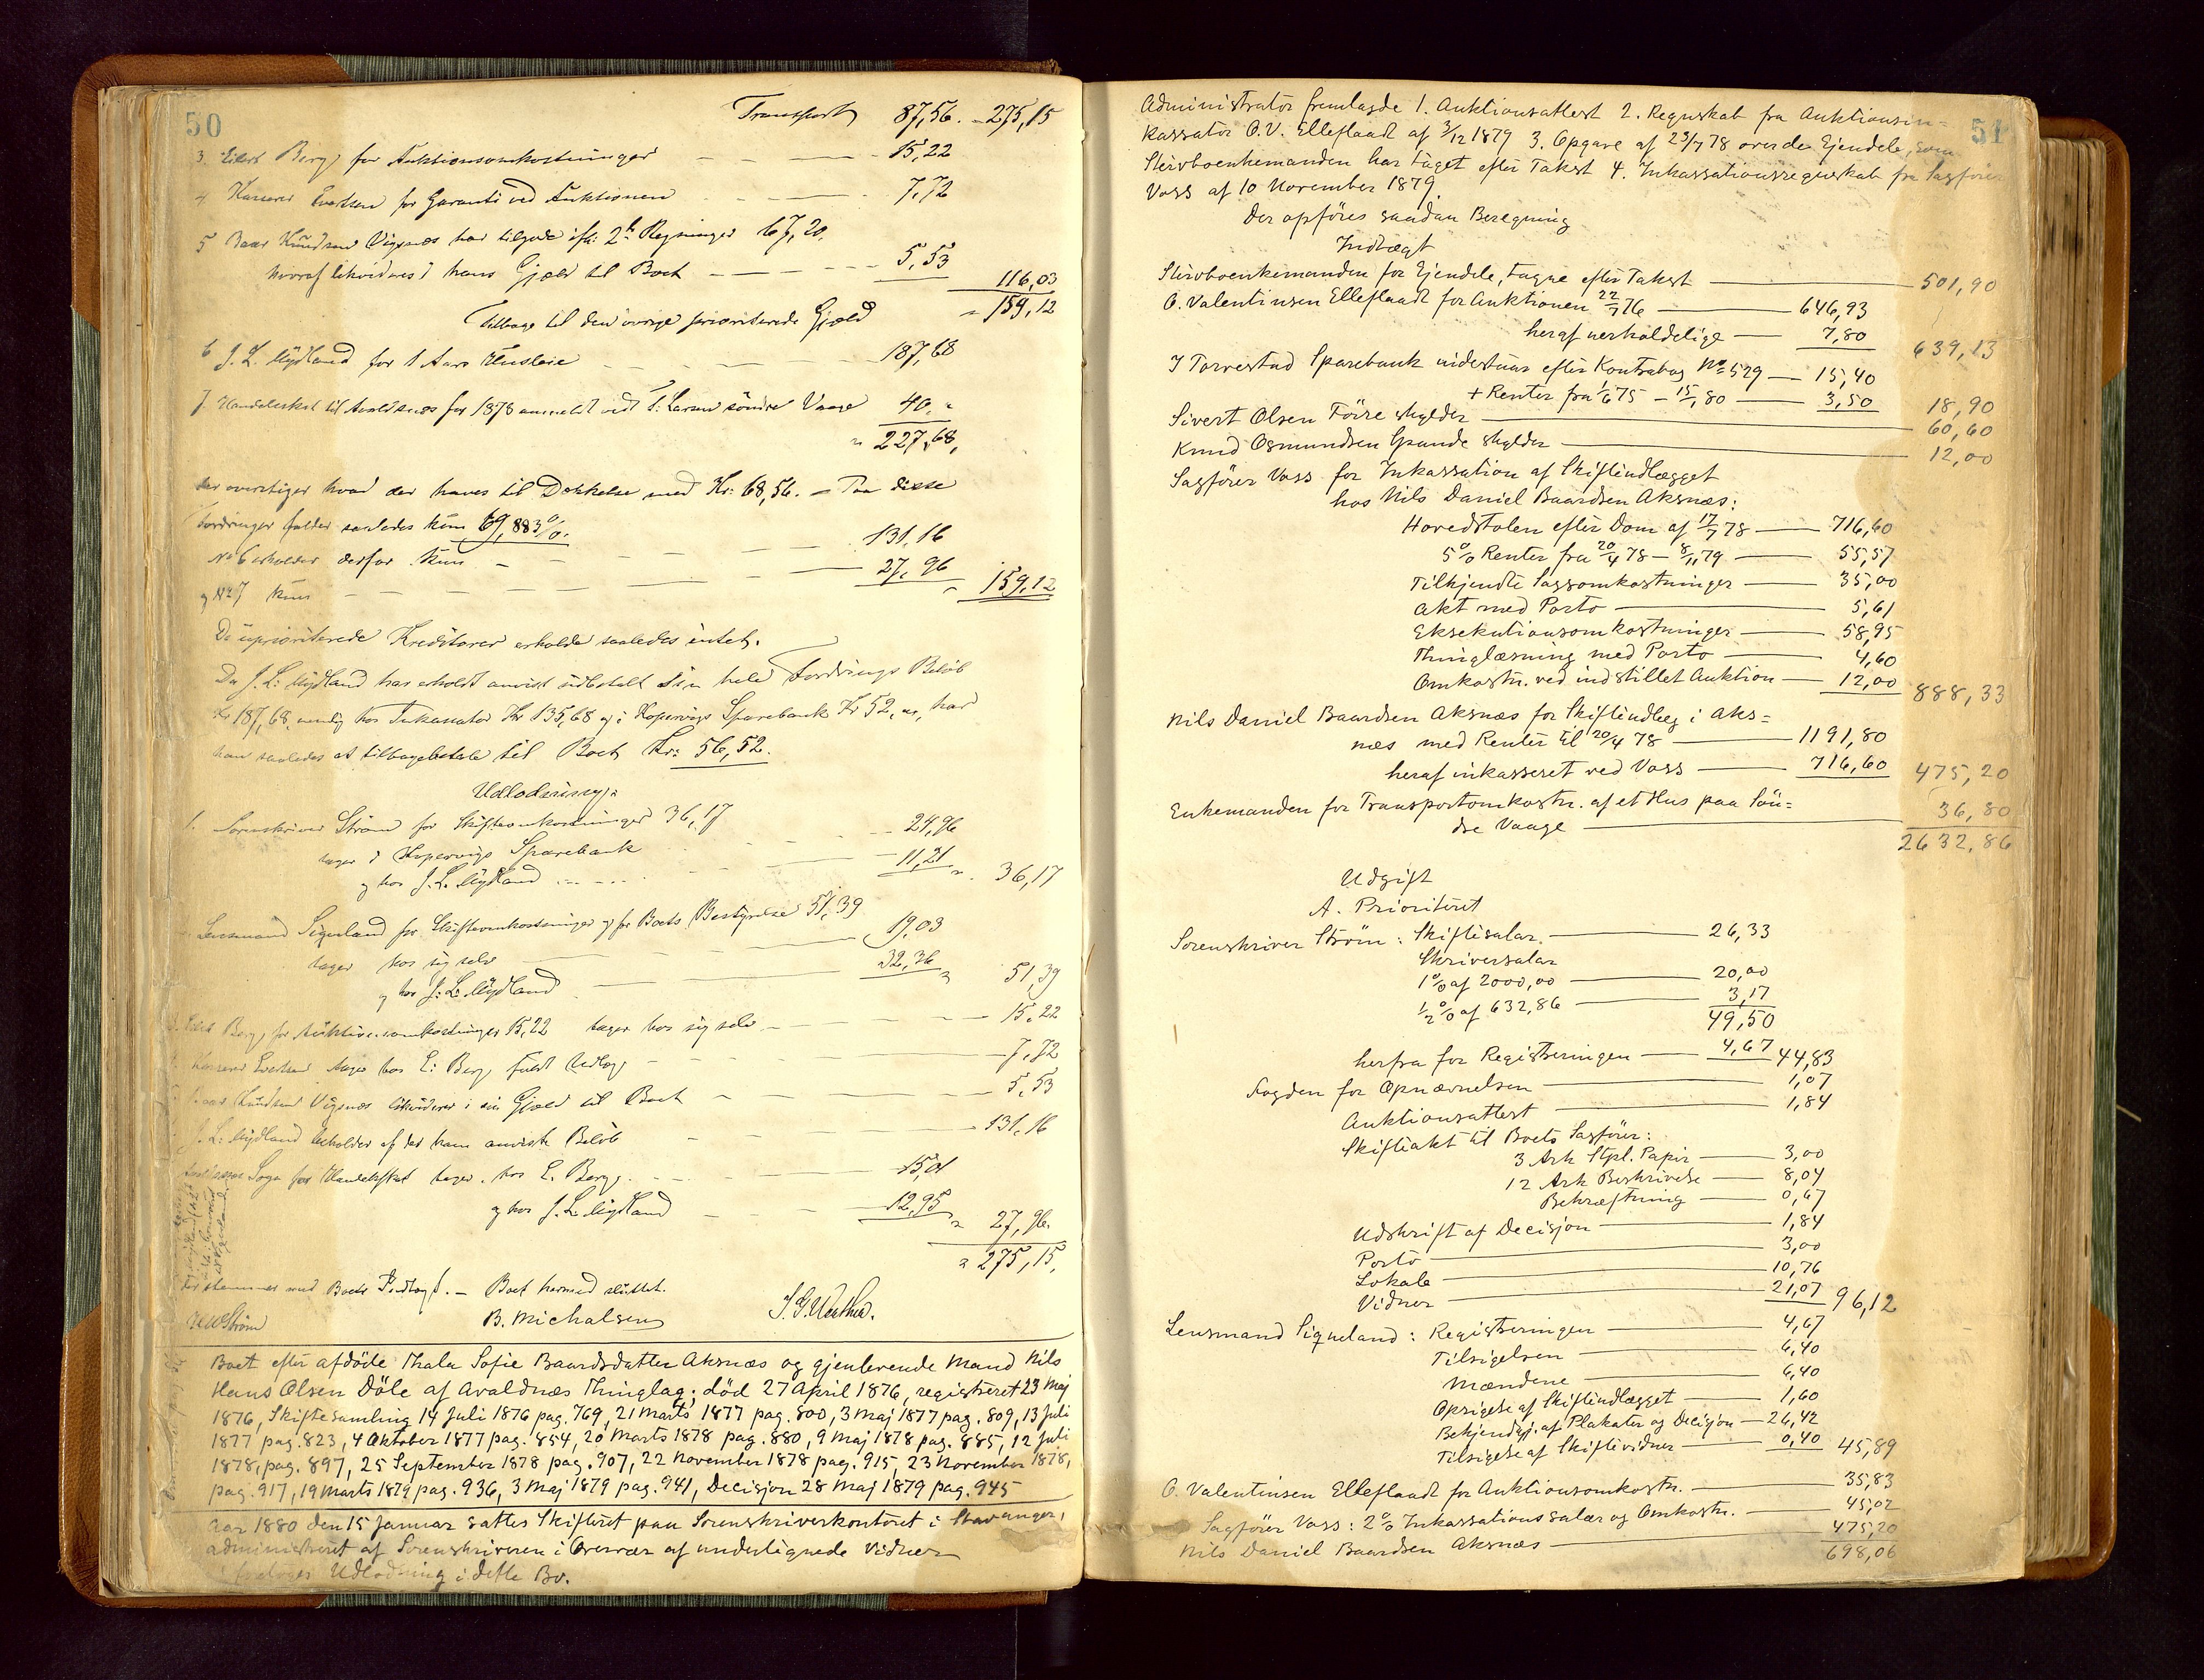 50
Transport 87,56. - 275,15
3. Eilert Berg, for Auktionsomkostninger — — — 15,22
4 Kasserer Evertsen for Garanti ved Auktionen — — 7,72
5 Baar Knudsen Vigsnæs har tilgode ifl: 2de Regninger 67,20.
hvoraf likvideres i hans Gjæld til Boet — — — 5,53
116,03
Tilbage til den øvrige prioriterede Gjæld " 159,12
6 J. L. Mydland for 1 Aars Husleie — — — 187,68
7. Handelsskat til Avaldsnæs for 1878 anmeldt ved T. Larsen söndre Vaage 40,"
" 227,68,
der overstiger hvad der haves til Dækkelse med Kr: 68,56. — Paa disse
Fordringer falder saaledes kun 69,883 %.
No 6 erholder derfor kun — — — 131,16
og No 7 kun — — — 27,96
" 159,12
De uprioriterede Kreditorer erholder saaledes intet.
Da J. L. Mydland har erholdt anvist udbetalt sin hele Fordrings Beløb
Kr 187,68 nemlig hos Inkassator Kr 135,68 og i Kopervigs Sparebank Kr 52,00, har
han saaledes at tilbagebetale til Boet Kr: 56,52.
Udlodning:
1. Sorenskriver Strøm for Skifteomkostninger 36,17
tages i Kopervigs Sparebank — — 24,96
og hos J. L. Mydland — — 11,21 " 36,17
Lensmand Sigueland for Skifteomkostninger og for Boets Bestyrelse 51,39
tager hos sig selv — — 19,03
og hos J. L. Mydland — — 32,36 " 51,39
Eilert Berg, for Auktionsomkostninger 15,22 tager hos sig selv — — 15,22
Kasserer Evertsen tager hos E. Berg, fuldt Udlæg — — 7,72
Baar Knudsen Vigsnæs likviderer i sin Gjæld til Boet — — 5,53
J. L. Mydland beholder af det ham anviste Beløb — — 131,16
Avaldsnæs Sogn for Handelsskat tager hos E. Berg — — 15,01
og hos J. L. Mydland — — 12,95 " 27,96
" 275,15,
der stemmer med Boets Indtægt. — Boet hermed sluttet.
B. Michalsen
Boet efter afdöde Thala Sofie Baardsdatter Aksnæs og gjenlevende Mand Nils
Hans Olsen Döle af Avaldnæs Thinglag; död 27 April 1876, registreret 23 Maj
1876, Skiftesamling 14 Juli 1876 pag. 769, 21 Marts 1877 pag. 800, 3 Maj 1877 pag. 809, 13 Juli
1877 pag. 823, 4 Oktober 1877 pag. 854, 20 Marts 1878 pag. 880, 9 Maj 1878 pag. 885, 12 Juli
1878, pag. 897, 25 September 1878 pag. 907, 22 November 1878 pag. 915, 23 November 1878,
pag. 917, 19 Marts 1879 pag. 936, 3 Maj 1879 pag. 941, Decisjon 28 Maj 1879 pag. 945
Aar 1880 den 15 Januar sattes Skifteret paa Sorenskriverkontoret i Stavanger,
administreret af Sorenskriveren i Overvær af undertegnede Vidner
Udlodning i dette Bo.
51
Administrator fremlagde 1. Auktionsattest 2. Regnskab fra Auktionsin=
kassator O. V. Elleflaadt af 3/12 1879 3. Opgave af 23/7 78 over de Ejendele, som
Stervboenkemanden har taget efter Takst 4. Inkassationsregnskab fra Sagförer
Voss af 10 November 1879
Der opföres saadan Beregning
Indtægt
Stervboenkemanden for Ejendele, tagne efter Takst — 501,90
O. Valentinsen Elleflaadt for Auktionen 22/7 76 — 646,93
heraf uerholdelige — 7,80 639,13
I Torvestad Sparebank indestaar efter Kontrabog No 529 — 15,40
+ Renter fra 1/6 75 — 15/1 80 — 3,50 18,90
Sivert Olsen Förre skylder — 60,60
Knud Osmundsen Grande skylder — 12,00
Sagförer Voss for Inkassation af Skifteudlægget
hos Nils Daniel Baardsen Aksnæs:
Hovedstolen efter Dom af 17/7 78 — 716,60
5 % Renter fra 20/4 78 — 8/11 79 — 55,57
Tilkjendte Sagsomkostninger — 35,00
Akt med Porto — 5,61
Eksekutionsomkostninger — 58,95
Thinglæsning med Porto — 4,60
Omkostn. ved indstillet Auktion — 12,00 888,33
Nils Daniel Baardsen Aksnæs for Skifteudlæg i Aks=
næs med Renter til 20/4 78 — 1191,80
heraf inkasseret ved Voss — 716,60 475,20
Enkemanden for Transportomkostn. af et Hus paa Sön=
dre Vaage — 36,80
2632,86
Udgift
A. Prioriteret
Sorenskriver Ström: Skiftesalær. — 26,33
Skriversalær
1 % af 2000,00 — 20,00
1/2 % af 632,86 — 3,17
49,50
herfra for Registreringen — 4,67 44,83
Fogden for Opnævnelsen — 1,07
Auktionsattest — 1,84
Skifteakt til Boets Sagförer:
3 Ark Stpl. Papir — 3,00
12 Ark Beskrivelse — 8,04
Bekræftning — 0,67
Udskrift af Decisjon — 1,84
Porto — 3,00
Lokale — 10,76
Vidner — 21,07 96,12
Lensmand Sigueland: Registreringen — 4,67
Tilsigelsen — 6,40
Mændene — 6,40
Opsigelse af Skifteudlægget — 1,60
Bekjendtgj. af Plakater og Decisjon — 26,42
Tilsigelse af Skiftevidner — 0,40 45,89
O. Valentinsen Elleflaadt for Auktionsomkostn. — 35,83
Sagförer Voss: 2 % Inkassationssalær og Omkostn. — 45,02
Nils Daniel Baardsen Aksnæs — 475,20
698,06